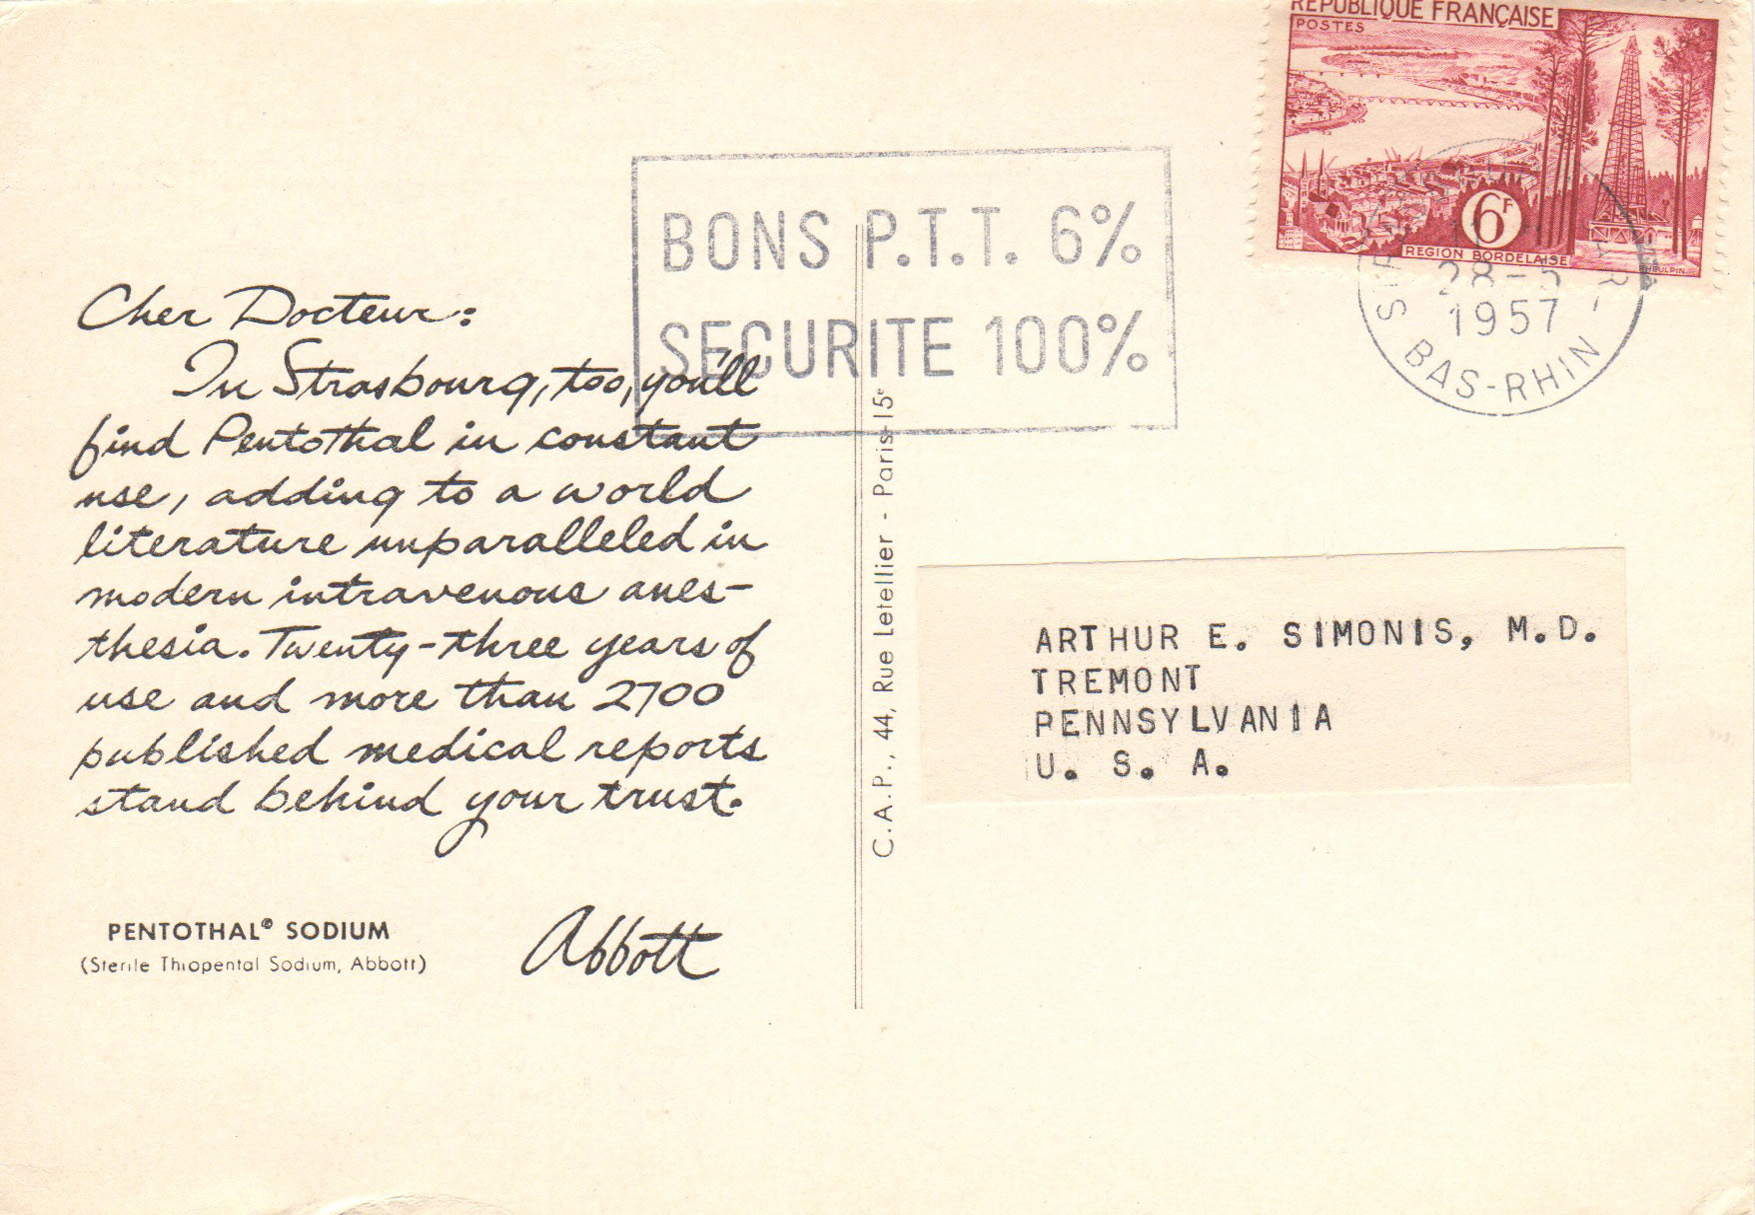 REPUBLIQUE FRANÇAISE
POSTES
6F
REGION BORDELAISE
28-5
1957
BAS-RHIN
BONS P.T.T. 6%
SECURITE 100%
Cher Docteur:
In Strasbourg, too, you'll
find Pentothal in constant
use, adding to a world
literature unparalleled in
modern intravenous anes-
thesia. Twenty-three years of
use and more than 2700
published medical reports
stand behind your trust.
Abbott
PENTOTHAL® SODIUM
(Sterile Thiopental Sodium, Abbott)
C.A.P., 44, Rue Letellier - Paris-15e
ARTHUR E. SIMONIS, M.D.
TREMONT
PENNSYLVANIA
U. S. A.